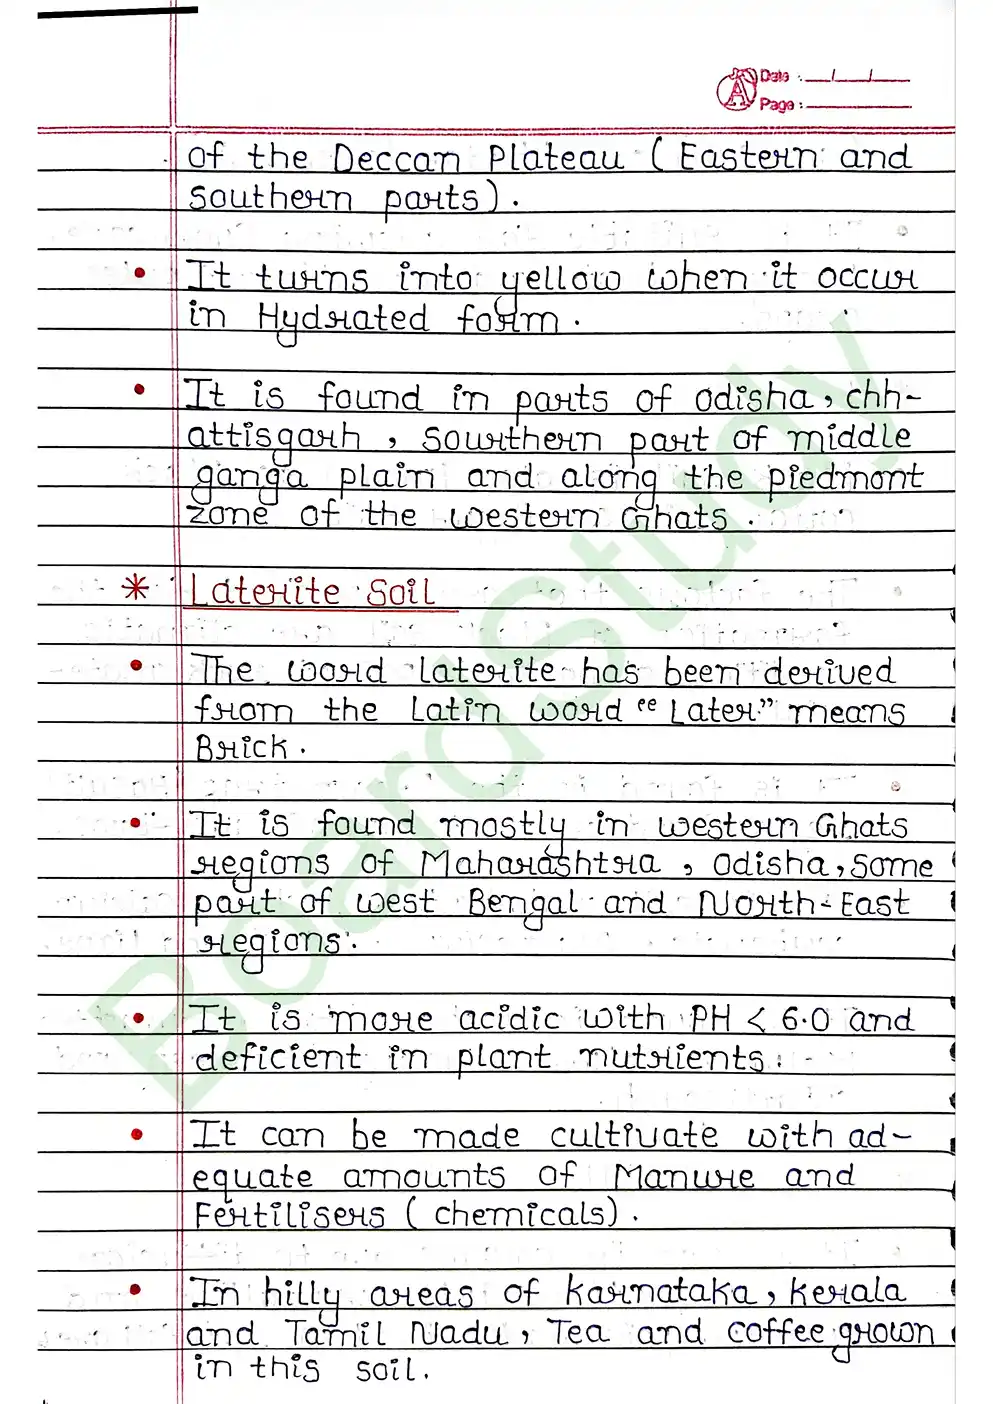 Date : __/__/__
Page : ______
of the Deccan Plateau ( Eastern and
southern parts).
• It turns into yellow when it occur
in Hydrated form .
• It is found in parts of odisha, chh-
attisgarh , sourthern part of middle
ganga plain and along the piedmont
zone of the western Ghats .
* Laterite Soil
• The word laterite has been derived
from the Latin word “ Later” means
Brick .
• It is found mostly in western Ghats
regions of Maharashtra , odisha, some
part of west Bengal and North-East
regions.
• It is more acidic with PH < 6.0 and
deficient in plant nutrients.
• It can be made cultivate with ad-
equate amounts of Manure and
Fertilisers ( chemicals) .
• In hilly areas of karnataka, kerala
and Tamil Nadu, Tea and coffee grown
in this soil.
BoardStudy